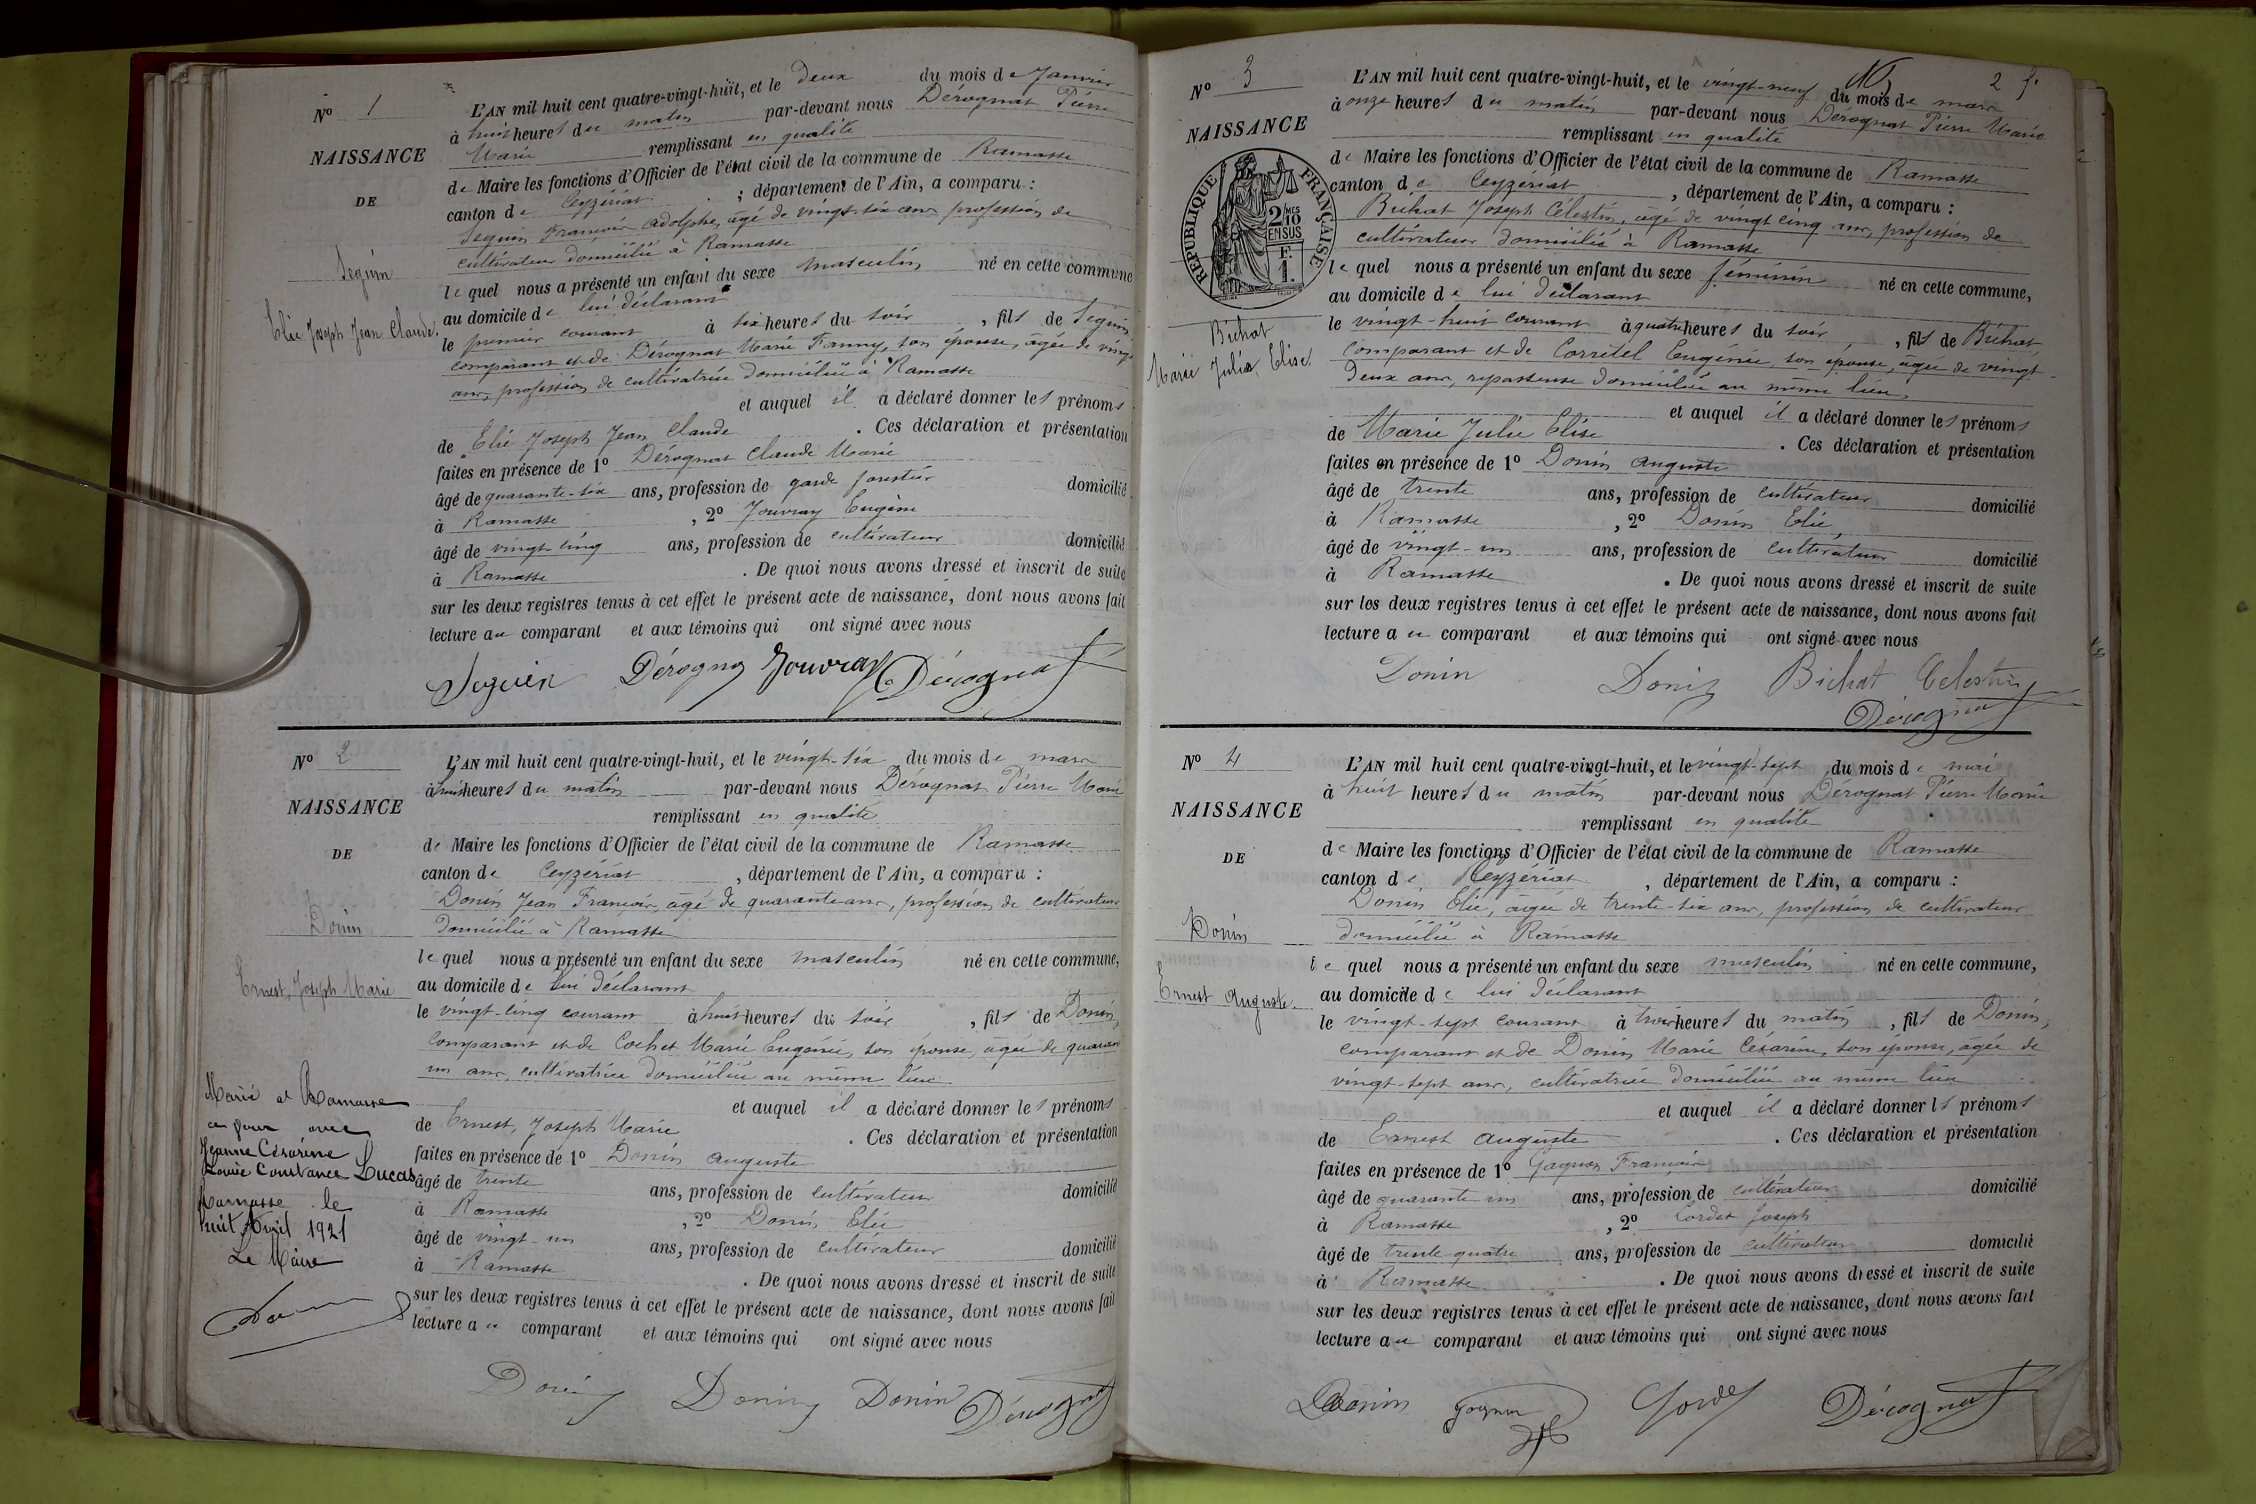 N° 1
NAISSANCE
DE
Seguin
Elie Joseph Jean Claude
L'AN mil huit cent quatre-vingt-huit, et le deux du mois de Janvier
à huit heures du matin par-devant nous Dérognat Pierre
Marie remplissant en qualité
de Maire les fonctions d'Officier de l'état civil de la commune de Ramasse
canton de Ceyzériat ; département de l'Ain, a comparu :
Seguin François Adolphe, âgé de vingt-six ans profession de
cultivateur domicilié à Ramasse
lequel nous a présenté un enfant du sexe masculin né en cette commune
au domicile de lui déclarant
le premier courant à six heures du soir , fils de Seguin
comparant et de Dérognat Marie Fanny, son épouse, âgée de vingt
ans, profession de cultivatrice domiciliée à Ramasse
et auquel il a déclaré donner les prénoms
de Elie Joseph Jean Claude . Ces déclaration et présentation
faites en présence de 1° Dérognat Claude Marie
âgé de quarante-six ans, profession de garde forestier domicilié
à Ramasse , 2° Jouvray Eugène
âgé de vingt-cinq ans, profession de cultivateur domicilié
à Ramasse . De quoi nous avons dressé et inscrit de suite
sur les deux registres tenus à cet effet le présent acte de naissance, dont nous avons fait
lecture au comparant et aux témoins qui ont signé avec nous
Seguin Dérognat Jouvray Dérognat
N° 2
NAISSANCE
DE
Donin
Ernest, Joseph Marie
Marié à Ramasse
ce jour avec
Jeanne Césarine
Louise Constance Lucas
Ramasse le
huit Avril 1921
Le Maire
L'AN mil huit cent quatre-vingt-huit, et le vingt-six du mois de mars
à huit heures du matin par-devant nous Dérognat Pierre Marie
remplissant en qualité
de Maire les fonctions d'Officier de l'état civil de la commune de Ramasse
canton de Ceyzériat , département de l'Ain, a comparu :
Donin Jean François, âgé de quarante ans, profession de cultivateur
domicilié à Ramasse
lequel nous a présenté un enfant du sexe masculin né en cette commune,
au domicile de lui déclarant
le vingt-cinq courant à huit heures du soir , fils de Donin,
comparant et de Cochet Marie Eugénie, son épouse, âgée de quarante
un ans, cultivatrice domiciliée au même lieu
et auquel il a déclaré donner les prénoms
de Ernest, Joseph Marie . Ces déclaration et présentation
faites en présence de 1° Donin Auguste
âgé de trente ans, profession de cultivateur domicilié
à Ramasse , 2° Donin Elie
âgé de vingt-un ans, profession de cultivateur domicilié
à Ramasse . De quoi nous avons dressé et inscrit de suite
sur les deux registres tenus à cet effet le présent acte de naissance, dont nous avons fait
lecture au comparant et aux témoins qui ont signé avec nous
Donin Donin Donin Dérognat
2 f.
N° 3
NAISSANCE
RÉPUBLIQUE FRANÇAISE
2/10 MES
EN SUS
F.
1.
Bichat
Marie Julie Elise
L'AN mil huit cent quatre-vingt-huit, et le vingt-neuf du mois de mars
à onze heures du matin par-devant nous Dérognat Pierre Marie
remplissant en qualité
de Maire les fonctions d'Officier de l'état civil de la commune de Ramasse
canton de Ceyzériat , département de l'Ain, a comparu :
Bichat Joseph Célestin, âgé de vingt cinq ans, profession de
cultivateur domicilié à Ramasse
lequel nous a présenté un enfant du sexe féminin né en cette commune,
au domicile de lui déclarant
le vingt-huit courant à quatre heures du soir , fils de Bichat,
comparant et de Corretel Eugénie, son épouse, âgée de vingt
deux ans, repasseuse domiciliée au même lieu,
et auquel il a déclaré donner les prénoms
de Marie Julie Elise . Ces déclaration et présentation
faites en présence de 1° Donin Auguste
âgé de trente ans, profession de cultivateur domicilié
à Ramasse , 2° Donin Elie,
âgé de vingt-un ans, profession de cultivateur domicilié
à Ramasse . De quoi nous avons dressé et inscrit de suite
sur les deux registres tenus à cet effet le présent acte de naissance, dont nous avons fait
lecture au comparant et aux témoins qui ont signé avec nous
Donin Donin Bichat Célestin
Dérognat
N° 4
NAISSANCE
DE
Donin
Ernest Auguste
L'AN mil huit cent quatre-vingt-huit, et le vingt-sept du mois de mai
à huit heures du matin par-devant nous Dérognat Pierre Marie
remplissant en qualité
de Maire les fonctions d'Officier de l'état civil de la commune de Ramasse
canton de Ceyzériat , département de l'Ain, a comparu :
Donin Elie, âgée de trente-six ans, profession de cultivateur
domicilié à Ramasse
lequel nous a présenté un enfant du sexe masculin né en cette commune,
au domicile de lui déclarant
le vingt-sept courant à trois heures du matin , fils de Donin,
comparant et de Donin Marie Césarine, son épouse, âgée de
vingt-sept ans, cultivatrice domiciliée au même lieu
et auquel il a déclaré donner ls prénoms
de Ernest Auguste . Ces déclaration et présentation
faites en présence de 1° Gagnon François
âgé de quarante un ans, profession de cultivateur domicilié
à Ramasse , 2° Cordet Joseph
âgé de trente quatre ans, profession de cultivateur domicilié
à Ramasse . De quoi nous avons dressé et inscrit de suite
sur les deux registres tenus à cet effet le présent acte de naissance, dont nous avons fait
lecture au comparant et aux témoins qui ont signé avec nous
Donin Gagnon Cordet Dérognat